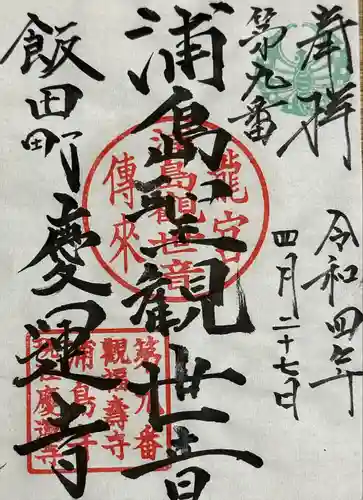 奉拝
第九番
令和四年
四月二十七日
浦島聖観世音
飯田町慶運寺
龍宮
浦島観世音
傳来
第九番
観福壽寺
浦島寺